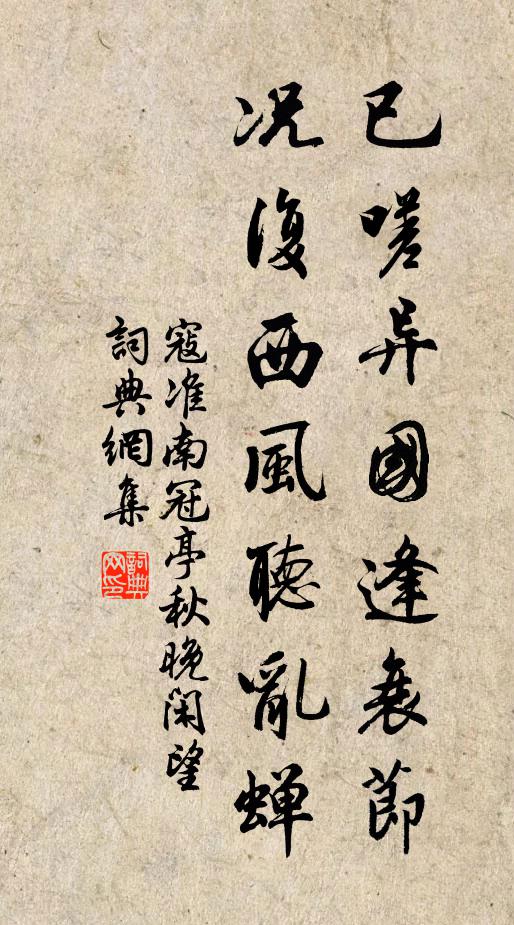 已嗟异國逢衰節
况復西風聽亂蝉
寇准南冠亭秋晚閑望
詞典網集
詞典网印